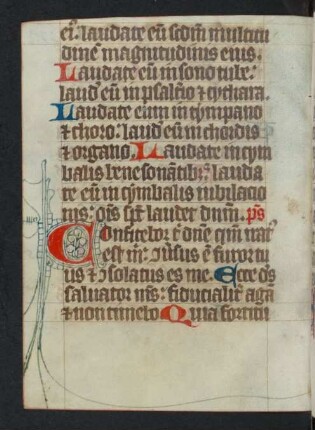 ei⁹. laudate eū scdm̄ multitu
dinē magnitudinis eius.
Laudate eū in sono tube:
laud̄ eū in psalt̄io ⁊ cythara.
Laudate eum in tympano
⁊ choro: laud̄ eū in chordis
⁊ organo. Laudate in cym
balis bene sonātib⁹: lauda
te eū in cymbalis iubilacio
nis: om̄s sp̄c laudet dn̄m. ps̄
Confitebor t̄ dn̄e qm̄ irat⁹
es m̄: ūsus ē furor tu
us ⁊ ɔsolatus es me. Ecce ds̄
saluator m̄s: fiducialit̄ agā
⁊ non timebo Quia fortitu